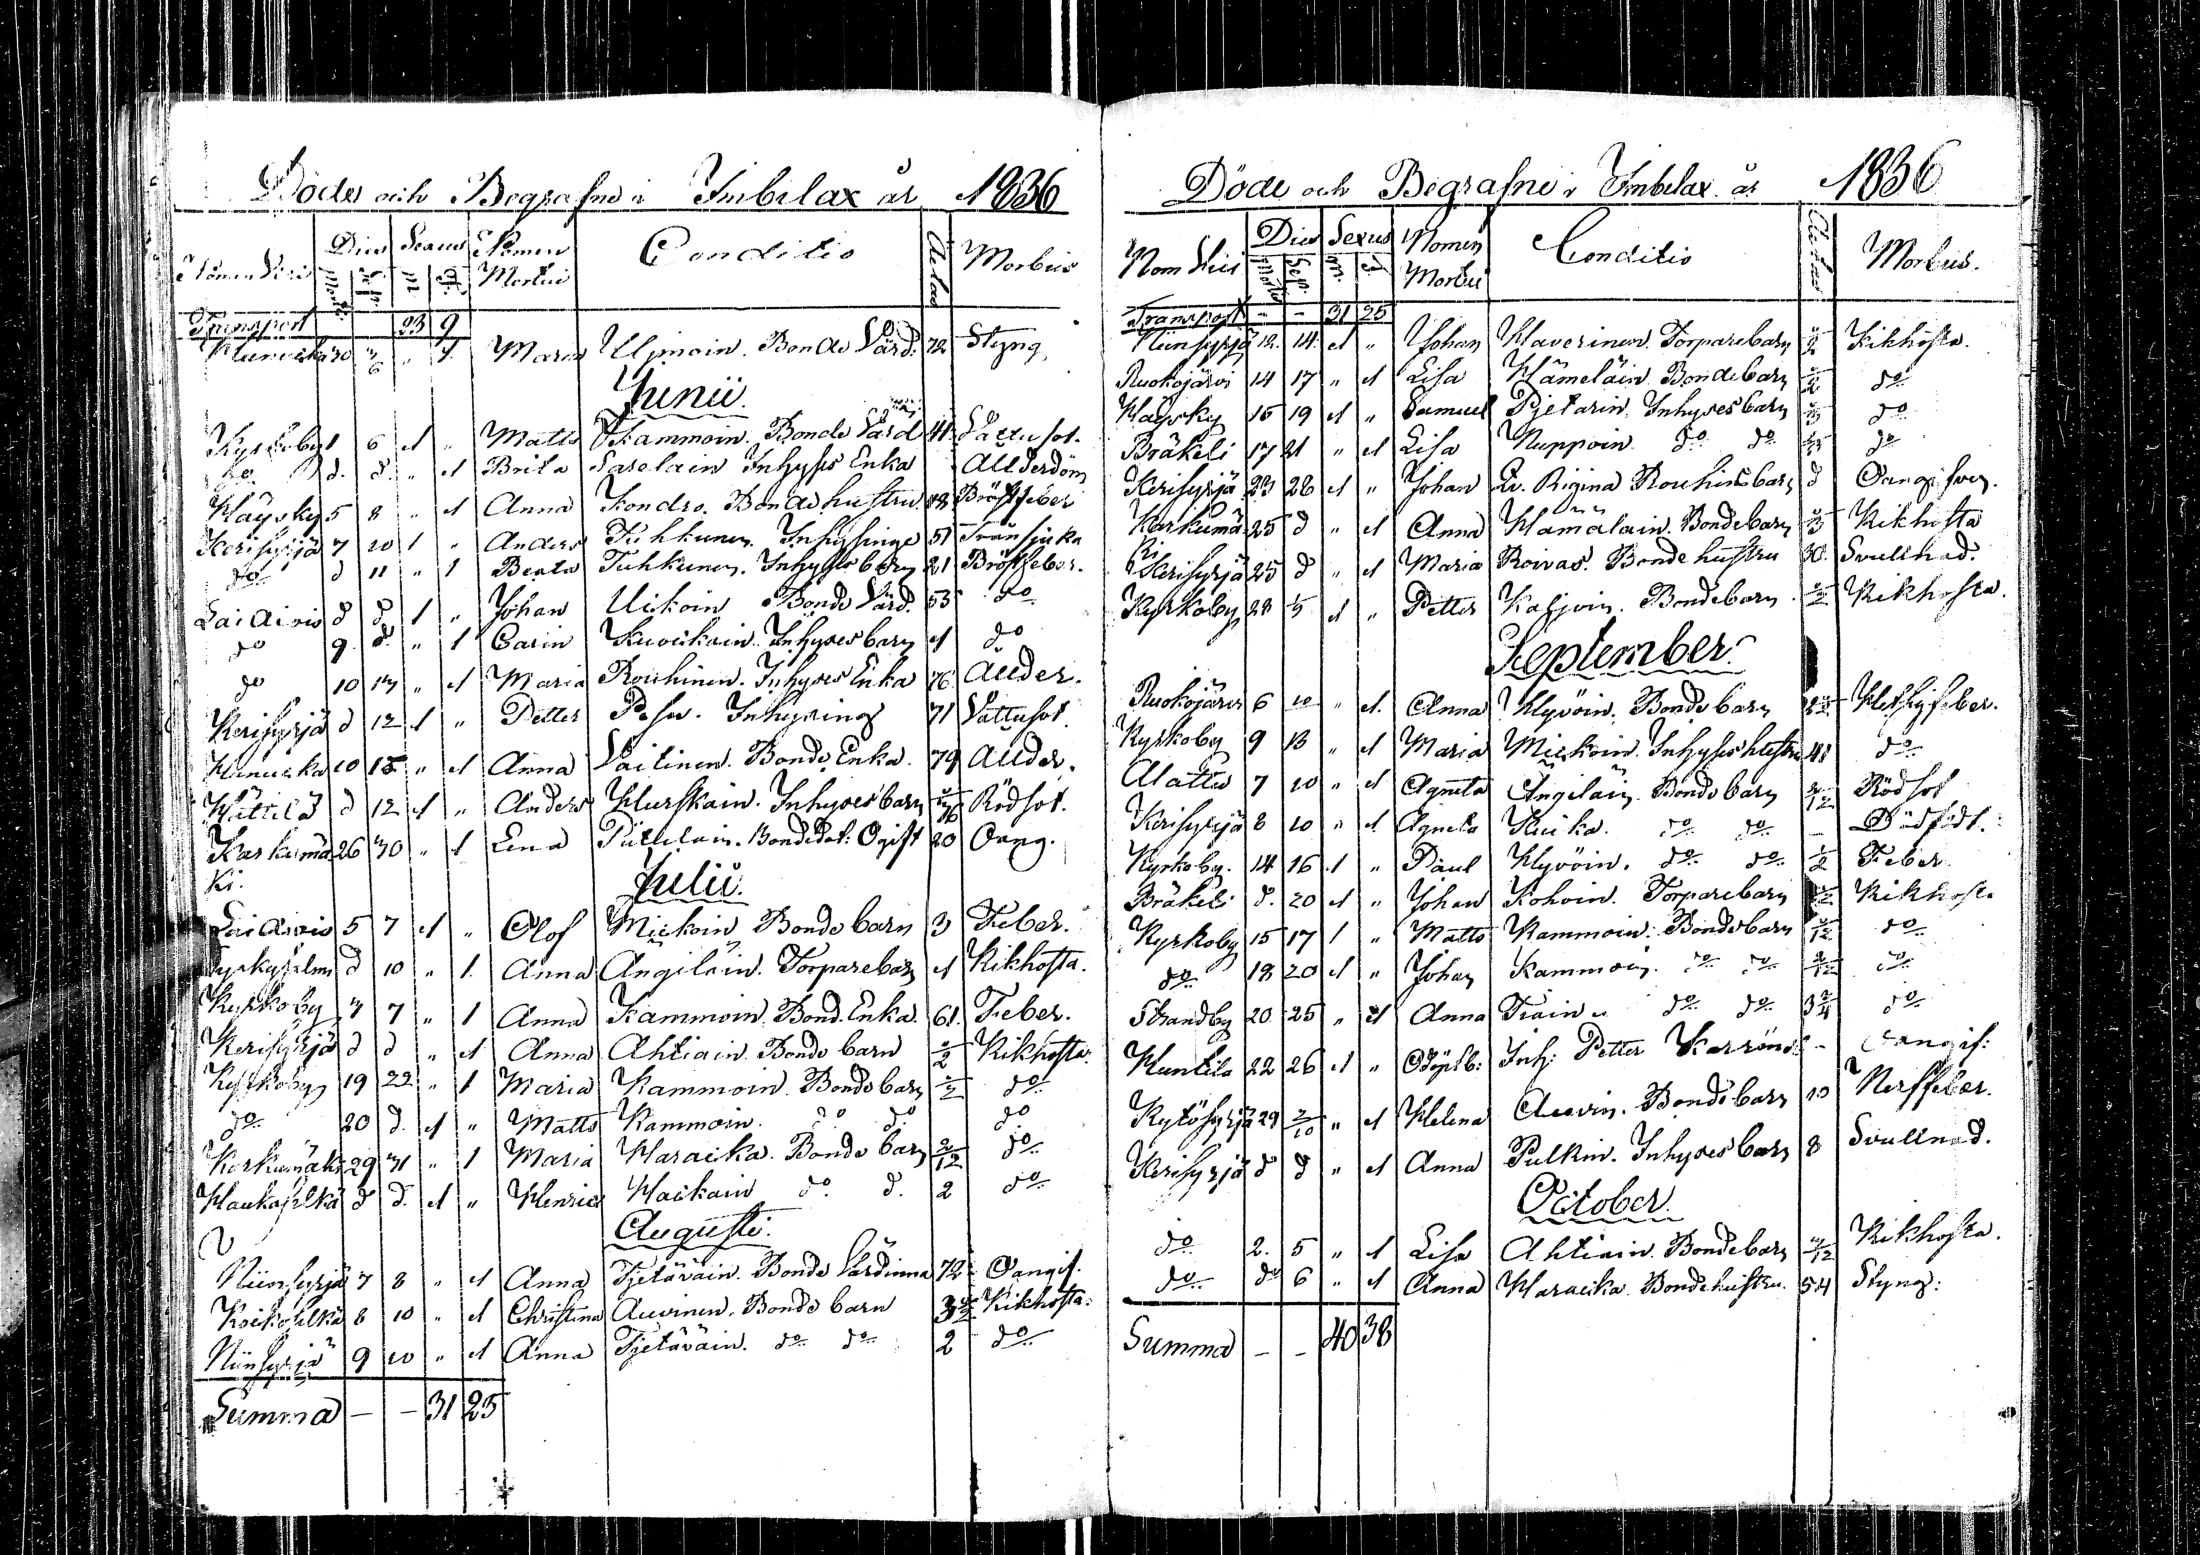 Döde och Begrafne i Imbilax år 1836
Nomen Vici Dies Sexus Nomen Mortui Conditio Aetas Morbus
Mortis Sep. M. F.
Transport 23 9
30 3/6 " 1 Maria Uljmoin. Bonde Värd. 72 Styng
Junii.
Kyrkoby 1 6 1 " Matts Kammoin. Bonde Värd 41 Vattusot.
do d. d. " 1 Brita Sarelain Inhyses Enka Ållderdom
Häysky 5 8 " 1 Anna Kondro. Bonde hustru Bröstfeber
Kerisyrjä 7 10 1 " Anders Tuhkunen. Inhysinge 51 Trånsjuka
do d 11 " 1 Beata Tuhkunen. Inhyses barn 21 Bröstfeber.
d d 1 " Johan Uickoin Bonde Värd. 53 do
do 9 d. " 1 Carin Kuickain. Inhyses barn 1 do
do 10 13 " 1 Maria Rouhinen. Inhyses Enka 76 Ållder.
Kerisyrjä d 12 1 " Petter Pesu. Inhysing 71 Vattusot.
Hunucka 10 15 " 1 Anna Vaitinen. Bonde Enka. 79 Ållder.
Hättilä d 12 1 " Anders Hurskain. Inhyses barn Rödsot.
Karkumä 26 30 " 1 Lena Püttilain. Bondedot: Ogift 20 Oang.
ki.
Julii.
5 7 1 " Olof Mickoin Bonde barn 3 Feber.
d 10 " 1. Anna Ängiläin. Torparebarn 1 Kikhosta.
Kyrkoby 3 7 " 1 Anna Kammoin. Bond. Enka. 61. Feber.
Kerisyrjä d d " 1 Anna Ahtiain. Bonde barn Kikhosta.
Kyrkoby 19 22 " 1 Maria Kammoin. Bonde barn do
do 20 d. 1 " Matts Kammoin. do do do
Karkumäki 29 31 " 1 Maria Haraicka. Bonde barn do
Haukaselkä d d. 1 " Henric Haikain do. d. 2 do
Augusti.
Niinisyrjä 7 8 " 1 Anna Tjetäväin. Bonde Värdinna 72 Oangif.
Koikoselkä 8 10 " 1 Christina Auvinen. Bonde barn Kikhosta.
Niinsyrjä 9 10 " 1 Anna Tjetäväin. do do 2 do
Summa – – 31 25
Döde och Begrafne i Imbelax år 1836
Nom Vici Dies Sexus Nomen Mortui Conditio Aetas Morbus.
Mortis Sep. m. f.
Transport – – 31 25
Niinsyrjä 12. 14. 1 " Johan Haverinen. Torparebarn Kikhosta.
Ruokojärvi 14 17 " 1 Lisa Hämeläin Bondebarn do
Häysky 15 19 1 " Samuel Pjetarin. Inhyses barn do
Bräkeli 17 21 " 1 Lisa Nuppoin do do do
Kerisyrjä 23 28 1 " Johan Rouhins barn d Oangifven.
Karkumä 25 d " 1 Anna Hämäläin. Bondebarn Kikhosta
ki
Kerisyrjä 25 d " 1 Maria Roivas. Bondehustru 30. Svullnad.
Kyrkoby 28 1 " Petter Kaljoin. Bondebarn Kikhosta.
September.
Ruokojärvi 6 10 " 1. Anna Hyvöin. Bonde barn Hetsigfeber.
Kyrkoby 9 13 " 1 Maria Mickoin. Inhyses hustru 41 do
Alattu 7 10 " 1 Agneta Ängiläin. Bonde barn Rödsot
Kerisyrjä 8 10 " 1 Agneta Kuika. do do – Dödfödt.
Kyrkoby. 14 16 1 " Paul Hyvöin. do do 1/2 Feber
Bräkeli d. 20 1 " Johan Kohoin. Torparebarn Kikhosta
Kyrkoby 15 17 1 " Matts Kammoin. Bondebarn do
do 18 20 1 " Johan Kammoin. do do do
Strandby 20 25 " 1 Anna Tiain do do do
Huntila 22 26 1 " Odöptb: Inh: Petter – Oangif:
29 2/10 " 1 Helena Auvin. Bonde barn 10 Nerffeber.
Kerisyrjä d d " 1 Anna Pulkin. Inhyses barn 8 Svullnad.
October.
do 2. 5 " 1 Lisa Ahtiain. Bondebarn Kikhosta.
do do 6 " 1 Anna Haraicka. Bondehustru. 54 Styng.
Summa – – 40 38